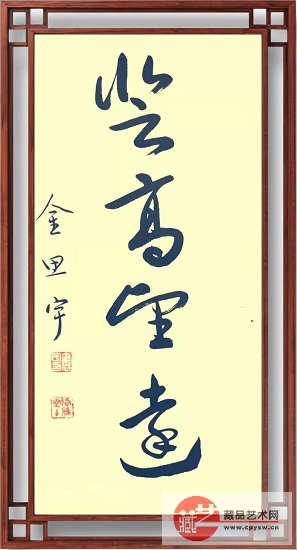 登高望遠
金思宇
藏艺
藏品艺术网
www.cpysw.cn